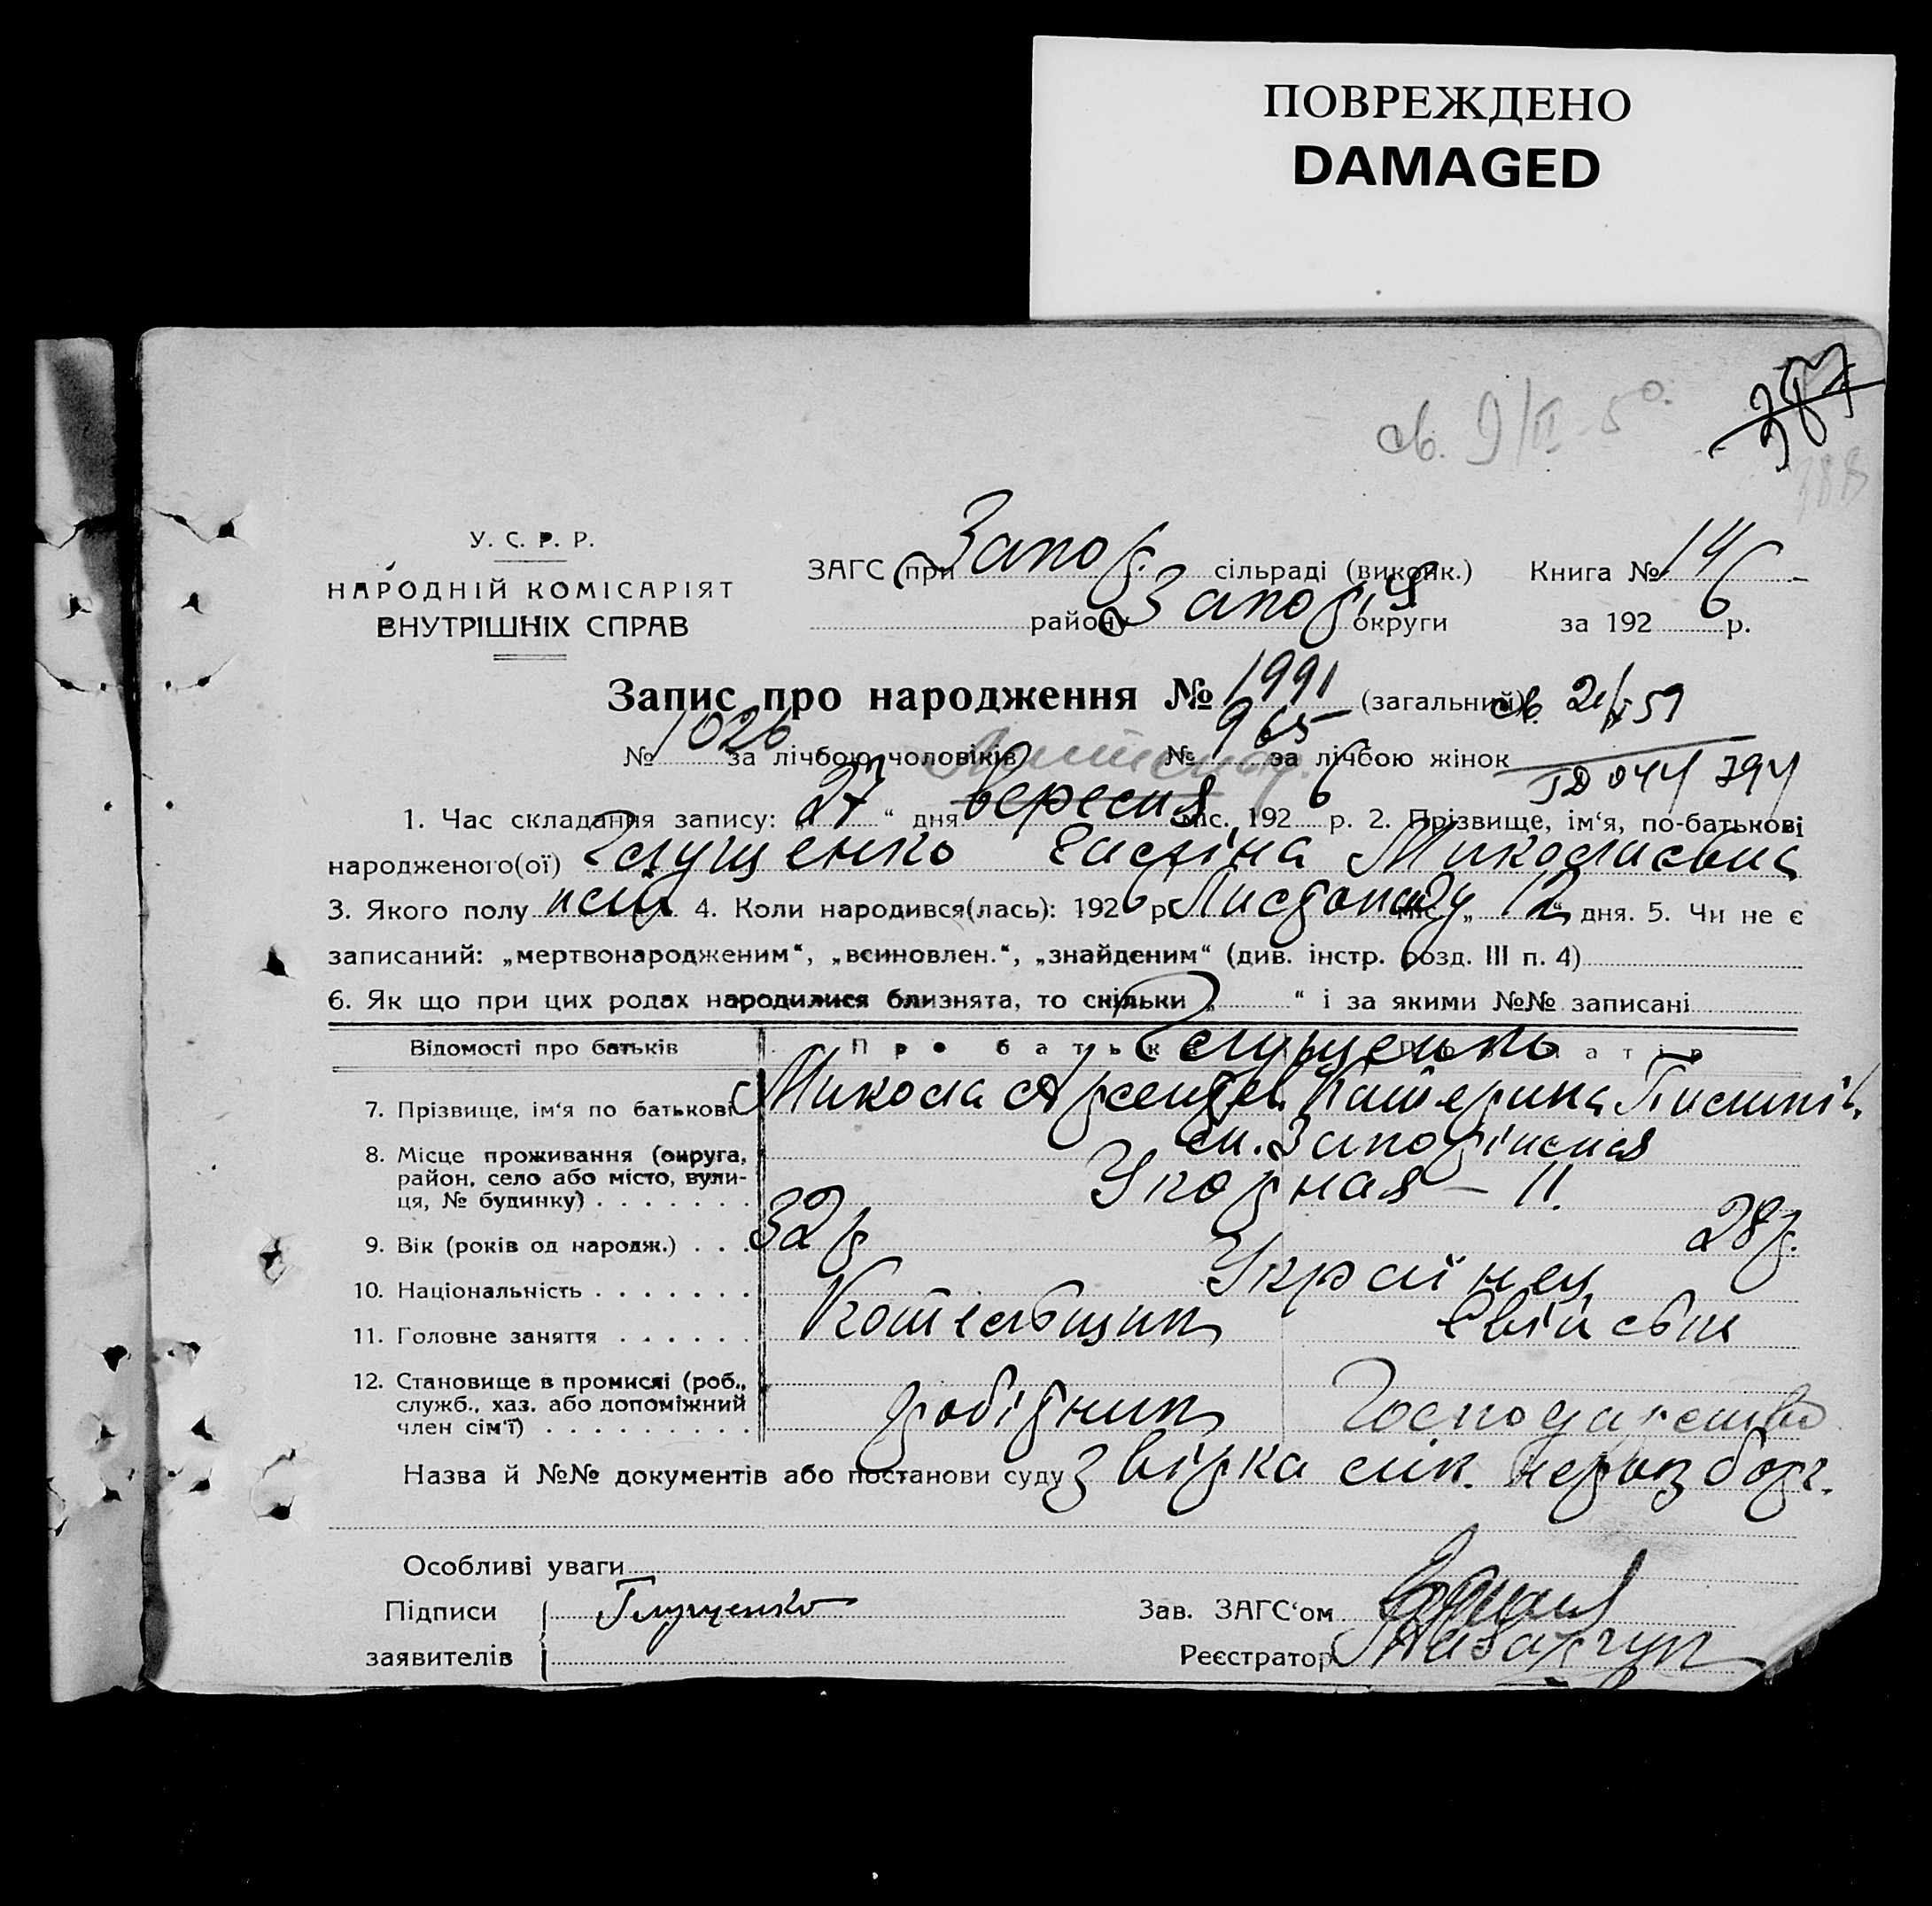 ПОВРЕЖДЕНО
DAMAGED
387
388
св. 9/II 50.
У. С. Р. Р.
НАРОДНІЙ КОМІСАРІЯТ
ВНУТРІШНІХ СПРАВ
ЗАГС при Запор. сільраді (виконк.) Книга № 14
району Запоріж округи за 1926 р.
Запис про народження № 1991 (загальний) св. 59
№ 1026 за лічбою чоловіків № 965 за лічбою жінок
ГД 044 794
1. Час складання запису: „27“ дня вересня міс. 1926 р. 2. Прізвище, ім‘я, по-батькові
народженого(ої) Глущенко Галина Миколаєвна
3. Якого полу 4. Коли народився(лась): 1926 р. Листопаду міс. „12“ дня. 5. Чи не є
записаний: „мертвонародженим“, „всиновлен.“, „знайденим“ (див. інстр. розд. III п. 4)
6. Як що при цих родах народилися близнята, то скільки „ “ і за якими №№ записані
Відомості про батьків Про батька Про матір
Глущенко
7. Прізвище, ім‘я по батькові Микола Арсентьев. Катерина
8. Місце проживання (округа, район, село або місто, вулиця, № будинку) ст. Запоріжжя
Узкорная – 11.
9. Вік (років од народж.) 32 р. 28 р.
10. Національність Українец
11. Головне заняття Котельщик
12. Становище в промислі (роб., служб., хаз. або допоміжний член сім‘ї) робітник Господарство
Назва й №№ документів або постанови суду звірка
Особливі уваги
Підписи заявителів Глущенко
Зав. ЗАГС‘ом
Реєстратор